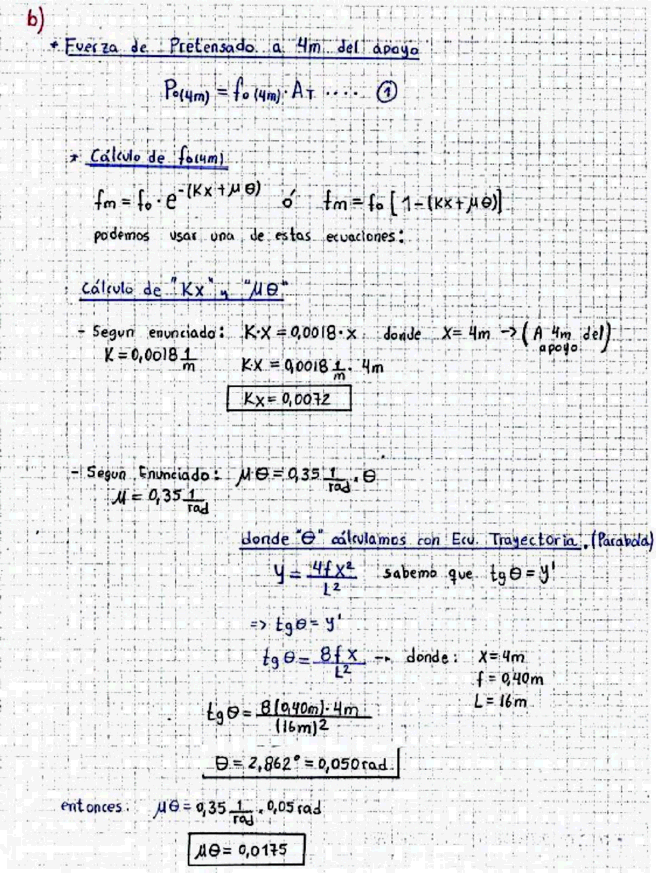 b)
* Fuerza de Pretensado a 4m del apoyo
Po(4m) = fo(4m) · AT .... ①
* Cálculo de fo(4m)
fm = fo · e^-(Kx + μθ) ó fm = fo [1-(Kx+μθ)]
podemos usar una de estas ecuaciones:
Cálculo de "Kx" y "μθ"
- Segun enunciado: K·X = 0,0018 · x donde X = 4m → (A 4m del apoyo)
K = 0,0018 1/m K·X = 0,0018 1/m · 4m
Kx = 0,0072
- Segun Enunciado: μθ = 0,35 1/rad · θ
μ = 0,35 1/rad
donde "θ" cálculamos con Ecu. Trayectoria. (Parabola)
y = 4fx²/L² sabemo que tgθ = y'
=> tgθ = y'
tgθ = 8fx/L² → donde: X = 4m
f = 0,40m
L = 16m
tgθ = 8(0,40m)·4m/(16m)²
θ = 2,862° = 0,050 rad
entonces: μθ = 0,35 1/rad · 0,05 rad
μθ = 0,0175